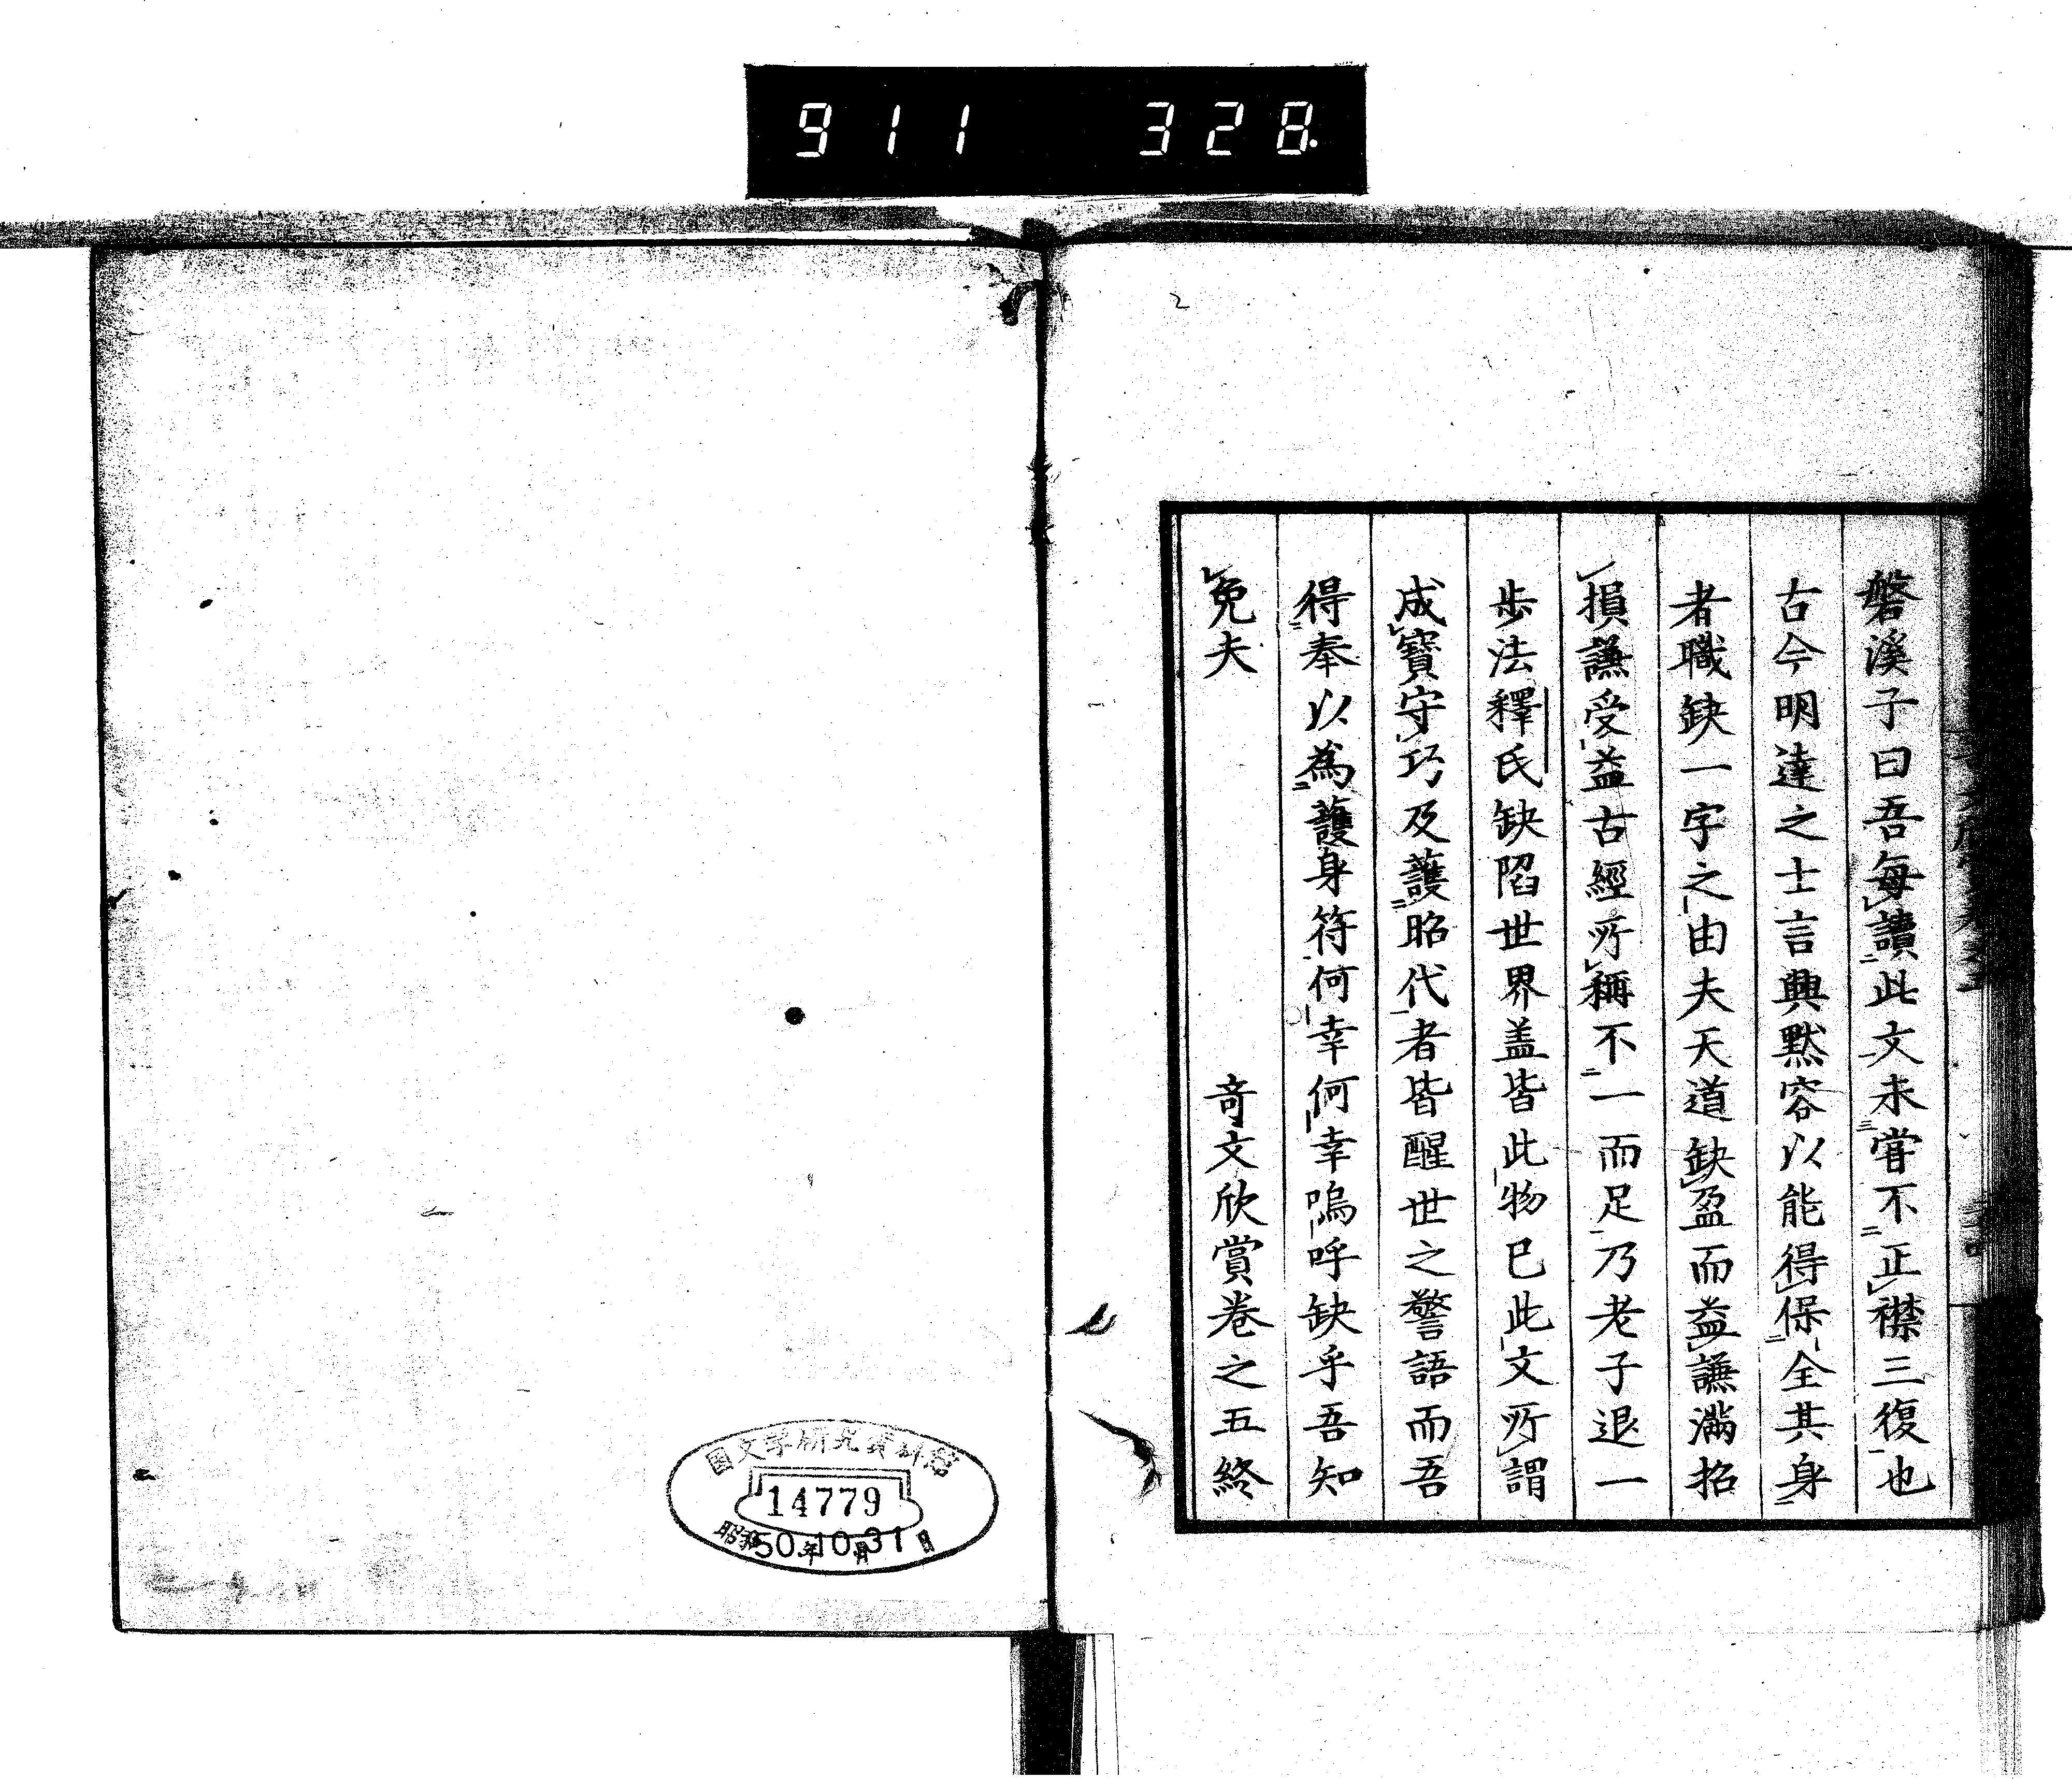 911 328
磐溪子曰吾毎讀此文未甞不正襟三復也
古今明達之士言與黙容以能得保全其身
者職缺一字之由夫天道缺盈而益謙滿招
損謙受益古經所稱不一而足乃老子退一
歩法釋氏缺陷世界盖皆此物已此文所謂
成寶守巧及護昭代者皆醒世之警語而吾
得奉以為護身符何幸何幸嗚呼缺乎吾知
免夫
奇文欣賞卷之五終
國文学研究資料館
14779
昭和50年10月31日